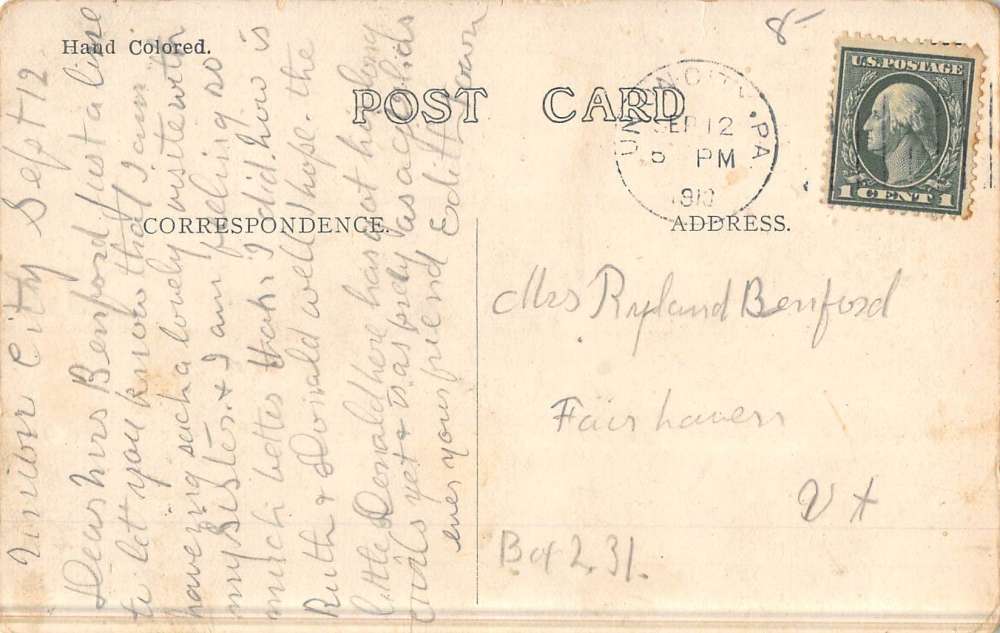 Hand Colored.
POST CARD
CORRESPONDENCE.
ADDRESS.
8-
UNION CITY, PA.
SEP 12
PM
191
U.S. POSTAGE
1 CENT 1
Union City Sept 12
Dear Mrs Benford just a line
to let you know that I am
having such a lovely visit with
my Sister & I am feeling so
much better than I did. how is
Ruth & Donald well I hope. the
little Donald here has got his long
curls yet & is as prety as a
ever your friend Edith Brown
Mrs Ryland Benford
Fairhaven
Vt
Box 231.